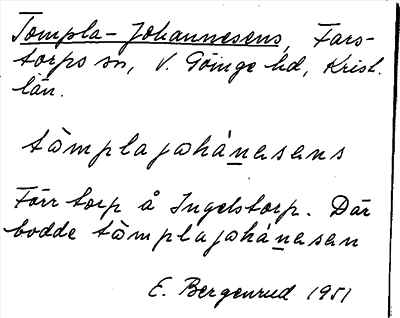 Tompla-Johannesens, Fars-
torps sn, V. Göinge hd, Krist.
län.
tòmplajohánesens
Förr torp å Ingelstorp. Där
bodde tòmplajohánesen
E. Bergenrud 1951